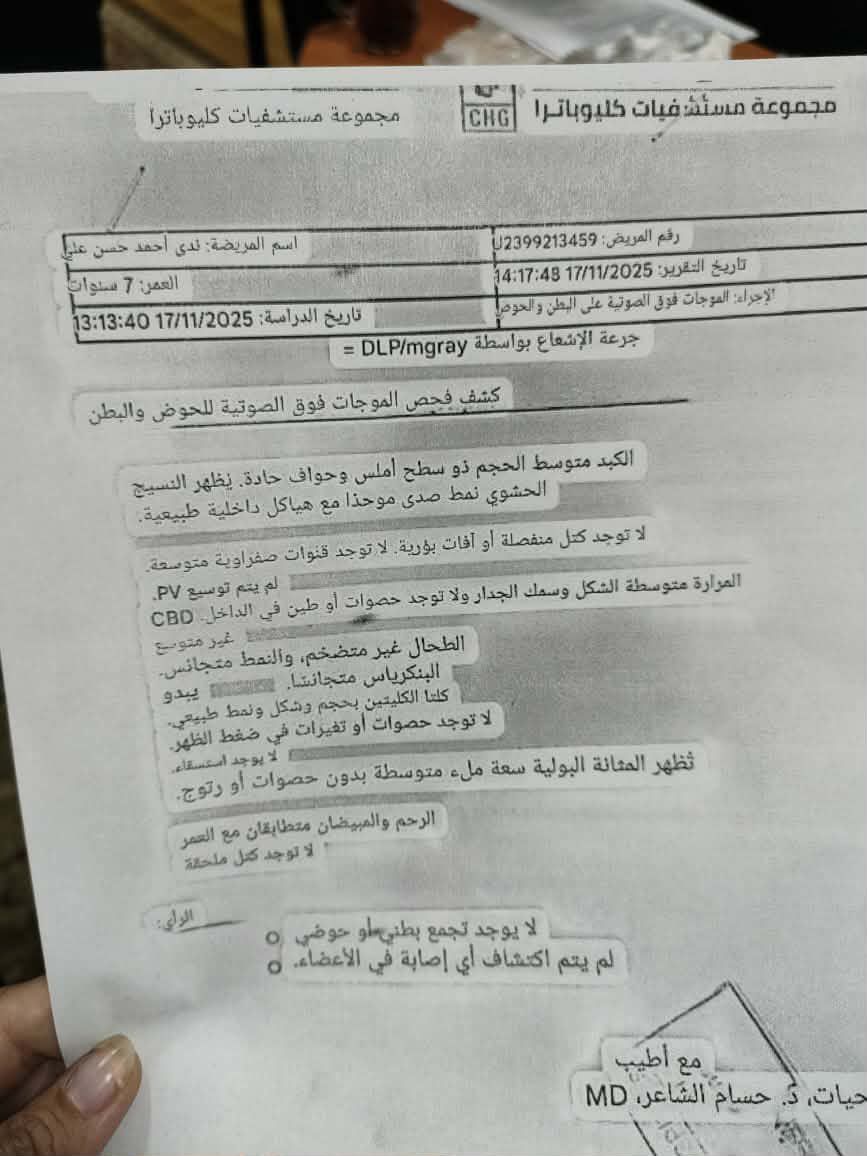 مجموعة مستشفيات كليوباترا
CHG
مجموعة مستشفيات كليوباترا
اسم المريضة: ندى أحمد حسن علي
رقم المريض: J2399213459
العمر: 7 سنوات
تاريخ التقرير: 17/11/2025 14:17:48
تاريخ الدراسة: 17/11/2025 13:13:40
الإجراء: الموجات فوق الصوتية على البطن والحوض
جرعة الإشعاع بواسطة DLP/mgray =
كشف فحص الموجات فوق الصوتية للحوض والبطن
الكبد متوسط الحجم ذو سطح أملس وحواف حادة. يُظهر النسيج
الحشوي نمط صدى موحدًا مع هياكل داخلية طبيعية.
لا توجد كتل منفصلة أو آفات بؤرية. لا توجد قنوات صفراوية متوسعة.
لم يتم توسيع PV.
المرارة متوسطة الشكل وسمك الجدار ولا توجد حصوات أو طين في الداخل. CBD
غير متوسع
الطحال غير متضخم، والنمط متجانس.
يبدو البنكرياس متجانسًا.
كلتا الكليتين بحجم وشكل ونمط طبيعي.
لا توجد حصوات أو تغيرات في ضغط الظهر.
لا يوجد استسقاء.
تُظهر المثانة البولية سعة ملء متوسطة بدون حصوات أو رتوج.
الرحم والمبيضان متطابقان مع العمر
لا توجد كتل ملحقة
الرأي:
لا يوجد تجمع بطني أو حوضي
لم يتم اكتشاف أي إصابة في الأعضاء.
مع أطيب
حيات، د. حسام الشاعر، MD